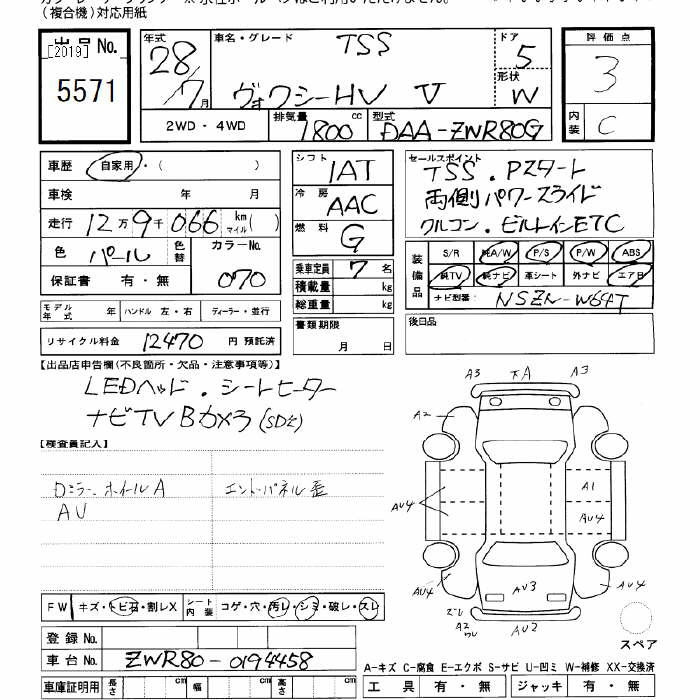 (複合機)対応用紙
出品No.
[2019]
5571
年式 28/7月
車名・グレード TSS
ヴォクシーHV V
ドア 5
形状 W
評価点 3
内装 C
2WD・4WD
排気量 1800 cc
型式 DAA-ZWR80G
車歴 自家用・( )
車検 年 月
走行 12万9千066 km マイル( )
色 パール 色替 カラーNo. 070
保証書 有・無
シフト IAT
冷房 AAC
燃料 G
乗車定員 7名
積載量 kg
総重量 kg
書類期限
月 日
セールスポイント
TSS.Pスタート
両側パワースライド
クルコン.ビルトインETC
装備品 S/R 純A/W P/S P/W ABS
純TV 純ナビ 革シート 外ナビ エアB
ナビ型番 NSZN-W64T
後日品
モデル年式 年 ハンドル 左・右 ディーラー・並行
リサイクル料金 12470 円 預託済
【出品店申告欄(不良箇所・欠品・注意事項等)】
LEDヘッド.シートヒーター
ナビTV Bカメラ(SD欠)
【検査員記入】
Dミラー.ホイールA
AU
エントパネル歪
A3 下A A3
A2
A1
AU4 AU4
AU4 AU3 AU4
ズレ
A2
ワレ
AU2
スペア
FW キズ・トビ石・割レX
シート内装 コゲ・穴・汚レ・シミ・破レ・スレ
登録No.
車台No. ZWR80-0194458
A-キズ C-腐食 E-エクボ S-サビ U-凹ミ W-補修 XX-交換済
車庫証明用 長さ cm 幅 cm 高さ cm
工具 有・無 ジャッキ 有・無